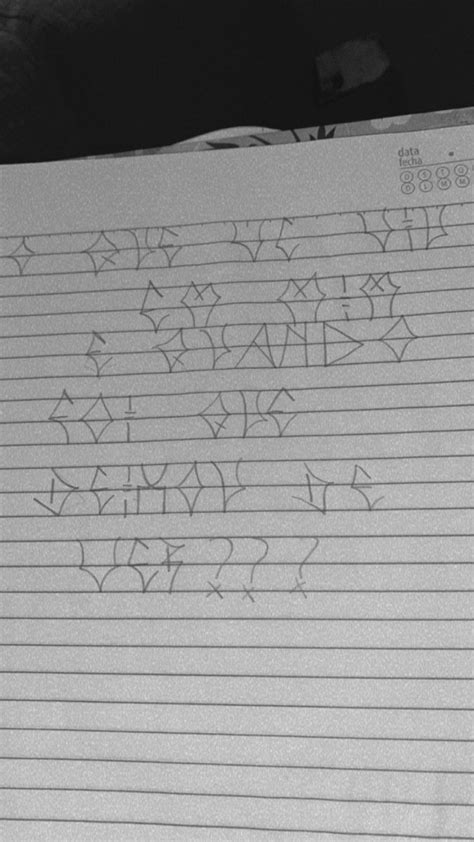 data
fecha
O QUE VC VIU
EM MIM
E QUANDO
FOI QUE
DEIXOU DE
VER???